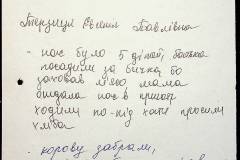 Терзиця Євгенія Павлівна
- нас було 5 дітей, батька
посадили за бичка, бо
заховав м'ясо, мама
оддала нас в приют
ходили по-під хати просили
хліба
- корову забрали,